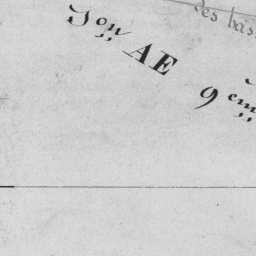 des bas
Son AE 9em